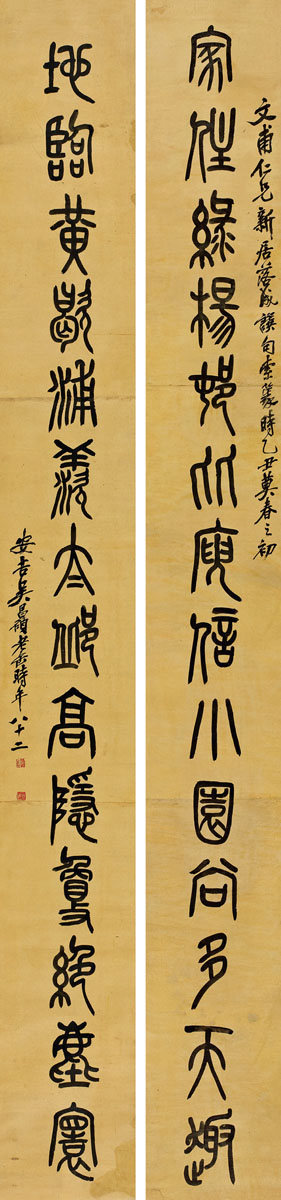 文甫仁兄新居落成譔句索篆時乙丑莫春之初
家住綠楊邨比庾信小園谷多天趣
地臨黃歇浦羨太邱高隱敻絕塵寰
安吉吳昌碩老缶時年八十二